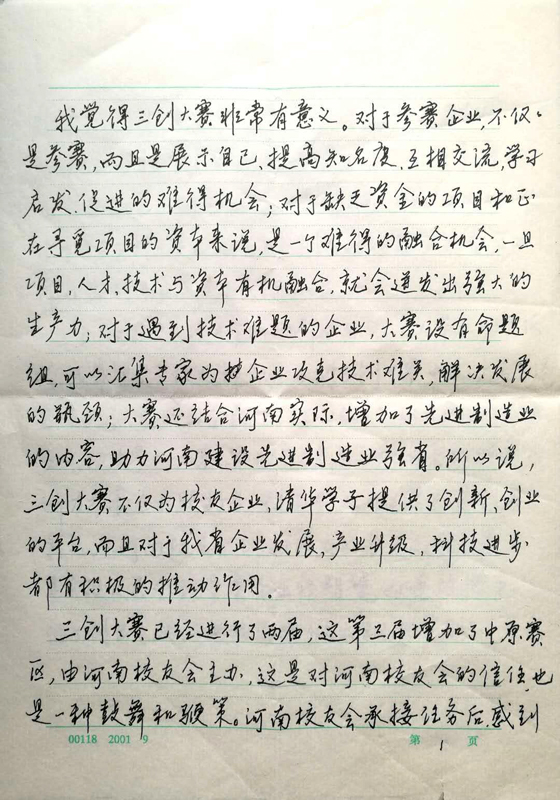 我觉得三创大赛非常有意义。对于参赛企业,不仅仅
是参赛,而且是展示自己、提高知名度、互相交流,学习
启发、促进的难得机会;对于缺乏资金的项目和正
在寻觅项目的资本来说,是一个难得的融合机会,一旦
项目、人才、技术与资本有机融合,就会迸发出强大的
生产力;对于遇到技术难题的企业,大赛设有命题
组,可以汇集专家为该企业攻克技术难关,解决发展
的瓶颈;大赛还结合河南实际,增加了先进制造业
的内容,助力河南建设先进制造业强省。所以说,
三创大赛不仅为校友企业、清华学子提供了创新、创业
的平台,而且对于我省企业发展,产业升级,科技进步
都有积极的推动作用。
三创大赛已经进行了两届,这第三届增加了中原赛
区,由河南校友会主办,这是对河南校友会的信任,也
是一种鼓舞和鞭策。河南校友会承接任务后,感到
00118 2001 9 第 1 页